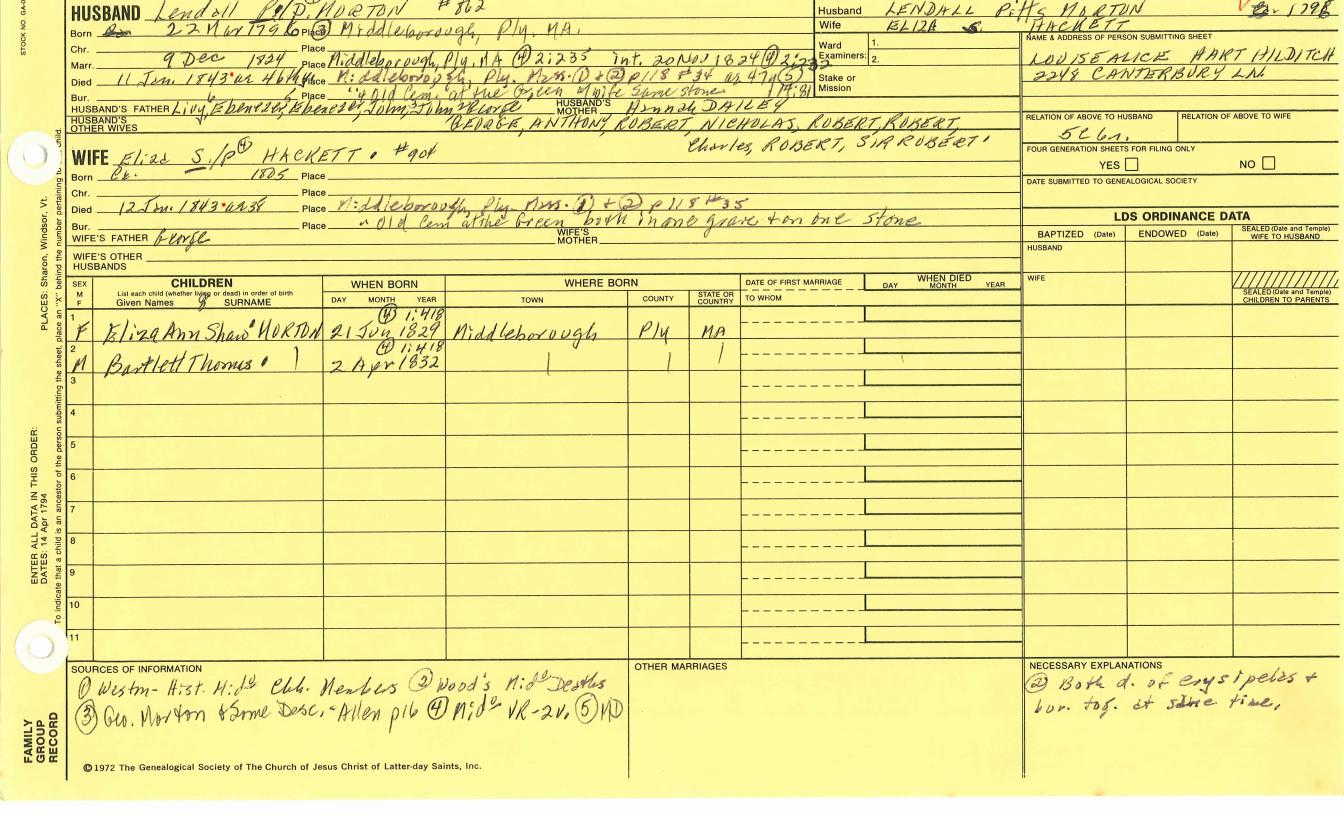 HUSBAND Lendall P/D. MORTON #862
Born 22 Mar 1796 Place ③ Middleborough, Ply. MA.
Chr. Place
Marr. 9 Dec 1824 Place Middleborough, Ply, MA ④ 2:235 int. 20 Nov 1824 ④ 2:232
Died 11 Jan. 1843 Place Middleborough, Ply. Mass. ① & ② p118 #34 as 47 ⑤
Bur. Place "Old Cem" at the Green & wife same stone 17:81
HUSBAND'S FATHER Livy, Ebenezer, Ebenezer, John, John, George HUSBAND'S MOTHER Hannah DAILEY
HUSBAND'S OTHER WIVES GEORGE, ANTHONY, ROBERT, NICHOLAS, ROBERT, ROBERT,
Charles, ROBERT, SIR ROBERT
WIFE Eliza S./P ④ HACKETT #904
Born Ca. 1805 Place
Chr. Place
Died 12 Jan. 1843 ae 38 Place Middleborough, Ply. Mass. ① & ② p118 #35
Bur. Place "Old Cem at the Green both in one grave & on one stone
WIFE'S FATHER George WIFE'S MOTHER
WIFE'S OTHER HUSBANDS
Husband LENDALL Pitts MORTON 1798
Wife ELIZA S. HACKETT
Ward 1.
Examiners: 2.
Stake or Mission
NAME & ADDRESS OF PERSON SUBMITTING SHEET
LOUISE ALICE HART HILDITCH
2248 CANTERBURY LN.
RELATION OF ABOVE TO HUSBAND RELATION OF ABOVE TO WIFE
5C6r.
FOUR GENERATION SHEETS FOR FILING ONLY
YES NO
DATE SUBMITTED TO GENEALOGICAL SOCIETY
LDS ORDINANCE DATA
BAPTIZED (Date) ENDOWED (Date) SEALED (Date and Temple) WIFE TO HUSBAND
HUSBAND
WIFE
SEALED (Date and Temple) CHILDREN TO PARENTS
SEX M F CHILDREN WHEN BORN WHERE BORN DATE OF FIRST MARRIAGE WHEN DIED
List each child (whether living or dead) in order of birth
Given Names SURNAME DAY MONTH YEAR TOWN COUNTY STATE OR COUNTRY TO WHOM DAY MONTH YEAR
④ 1:418
1 F Eliza Ann Shaw MORTON 21 Jun 1829 Middleborough Ply MA
④ 1:418
2 M Bartlett Thomas 2 Apr 1832
3
4
5
6
7
8
9
10
11
SOURCES OF INFORMATION
① Westm- Hist. Mid° Chh. Members ② Wood's Mid° Deaths
③ Geo. Morton & Some Desc. - Allen p16 ④ Mid° VR-2v. ⑤ MD
OTHER MARRIAGES
NECESSARY EXPLANATIONS
② Both d. of erysipelas +
bur. tog. at same time.
©1972 The Genealogical Society of The Church of Jesus Christ of Latter-day Saints, Inc.
FAMILY GROUP RECORD
ENTER ALL DATA IN THIS ORDER:
DATES: 14 Apr 1794
PLACES: Sharon, Windsor, Vt.
To indicate that a child is an ancestor of the person submitting the sheet, place an "X" behind the number pertaining to child.
STOCK NO